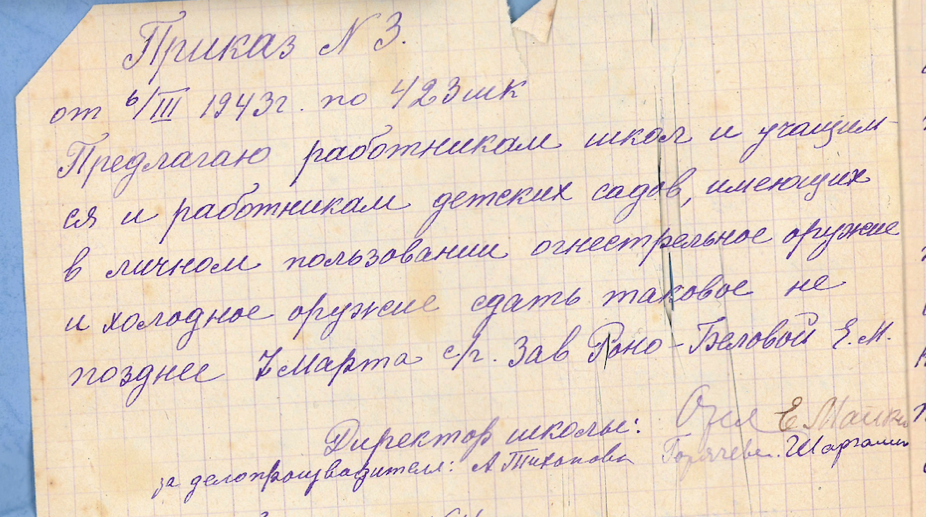 Приказ N 3.
от 6/III 1943г. по 423 шк
Предлагаю работникам школ и учащим-
ся и работникам детских садов, имеющих
в личном пользовании огнестрельное оружие
и холодное оружие сдать таковое не
позднее 7 Марта с/г. Зав Роно-Беловой Е.М.
Директор школы:
за делопроизводителя: А Тихонова